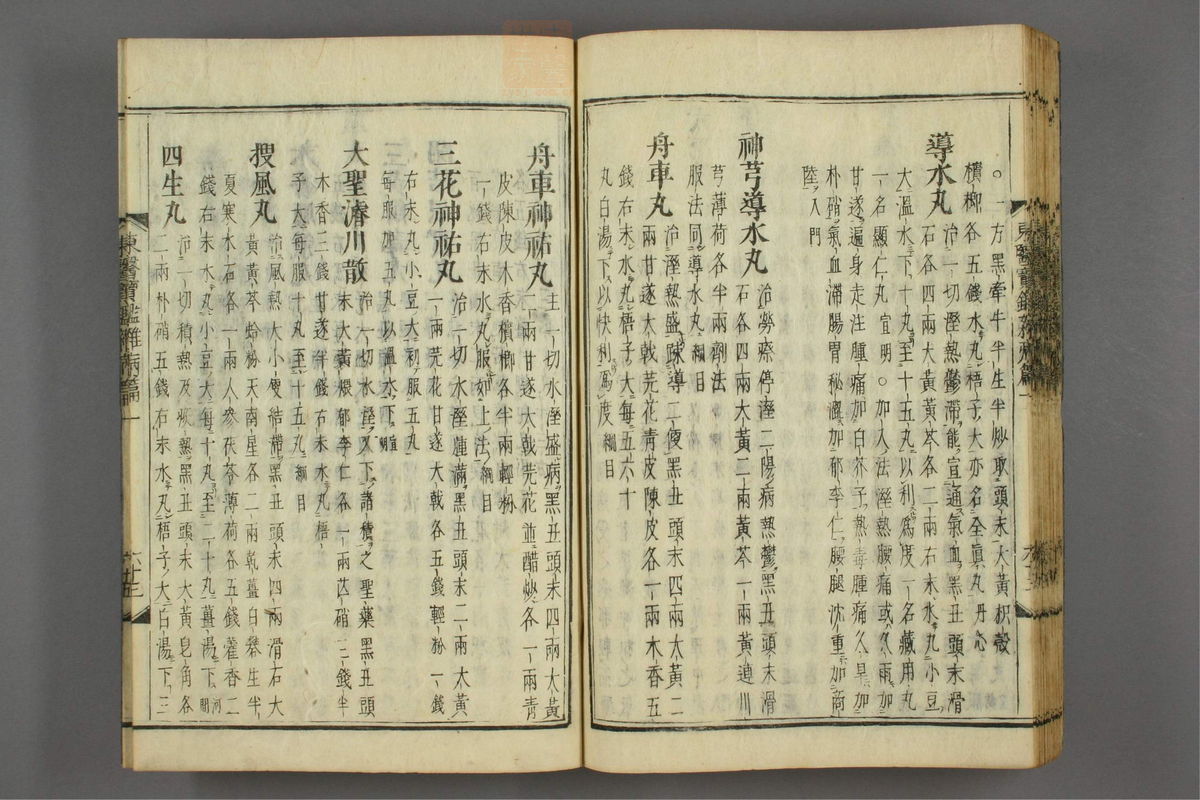 ○一方黑牽牛半生半炒取頭末大黃枳殼
檳榔各五錢水丸梧子大亦名全眞丸丹心
導水丸治一切溼熱鬱滯能宣通氣血黑丑頭末滑
石各四兩大黃黃芩各二兩右末水丸小豆
大溫水下十丸至十五丸以利爲度一名藏用丸
一名顯仁丸宣明○加入法溼熱腰痛或久雨加
甘遂遍身走注腫痛加白芥子熱毒腫痛久旱加
朴硝氣血滯腸胃秘澁加郁李仁腰腿沈重加商
陸入門
神芎導水丸治勞瘵停溼二陽病熱鬱黑丑頭末滑
石各四兩大黃二兩黃芩一兩黃連川
芎薄荷各半兩劑法
服法同導水丸綱目
舟車丸治溼熱盛疎導二便黑丑頭末四兩大黃二
兩甘遂大戟芫花靑皮陳皮各一兩木香五
錢右末水丸梧子大每五六十
丸白湯下以快利爲度綱目
東醫寶鑑雜病篇一
舟車神祐丸主一切水溼盛病黑丑頭末四兩大黃
二兩甘遂大戟芫花並醋炒各一兩靑
皮陳皮木香檳榔各半兩輕粉
一錢右末水丸服如上法綱目
三花神祐丸治一切水溼腫滿黑丑頭末二兩大黃
一兩芫花甘遂大戟各五錢輕粉一錢
右末丸小豆大利服五丸
每服加五丸以溫水下宣明
大聖濬川散治一切水溼又下諸積之聖藥黑丑頭
末大黃煨郁李仁各一兩芒硝三錢半
木香三錢甘遂半錢右末水丸梧
子大每服十丸至十五丸綱目
搜風丸治風熱大小便結滯黑丑頭末四兩滑石大
黃黃芩蛤粉天南星各二兩乾薑白礬生半
夏寒水石各一兩人參茯苓薄荷各五錢藿香二
錢右末水丸小豆大每十丸至二十丸薑湯下河間
四生丸治一切積熱及痰熱黑丑頭末大黃皂角各
二兩朴硝五錢右末水丸梧子大白湯下三
東醫寶鑑雜病篇一